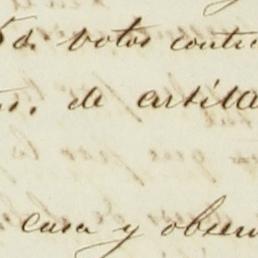 votos contr
de artille
casa y obser